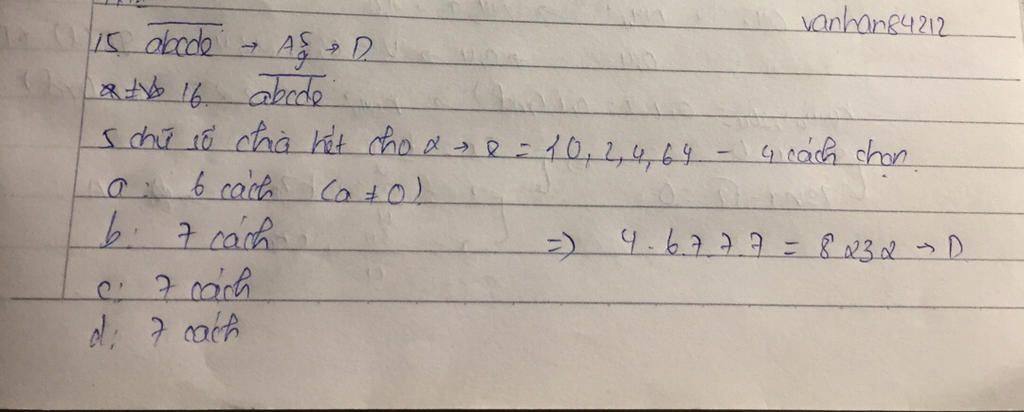 vanhan84212
15. abcde → A⁵₉ → D.
a ≠ b 16. abcde
5 chữ số chia hết cho 2 → e = {0, 2, 4, 6} - 4 cách chọn
a: 6 cách (a ≠ 0)
b: 7 cách => 4.6.7.7.7 = 8232 → D
c: 7 cách
d: 7 cách